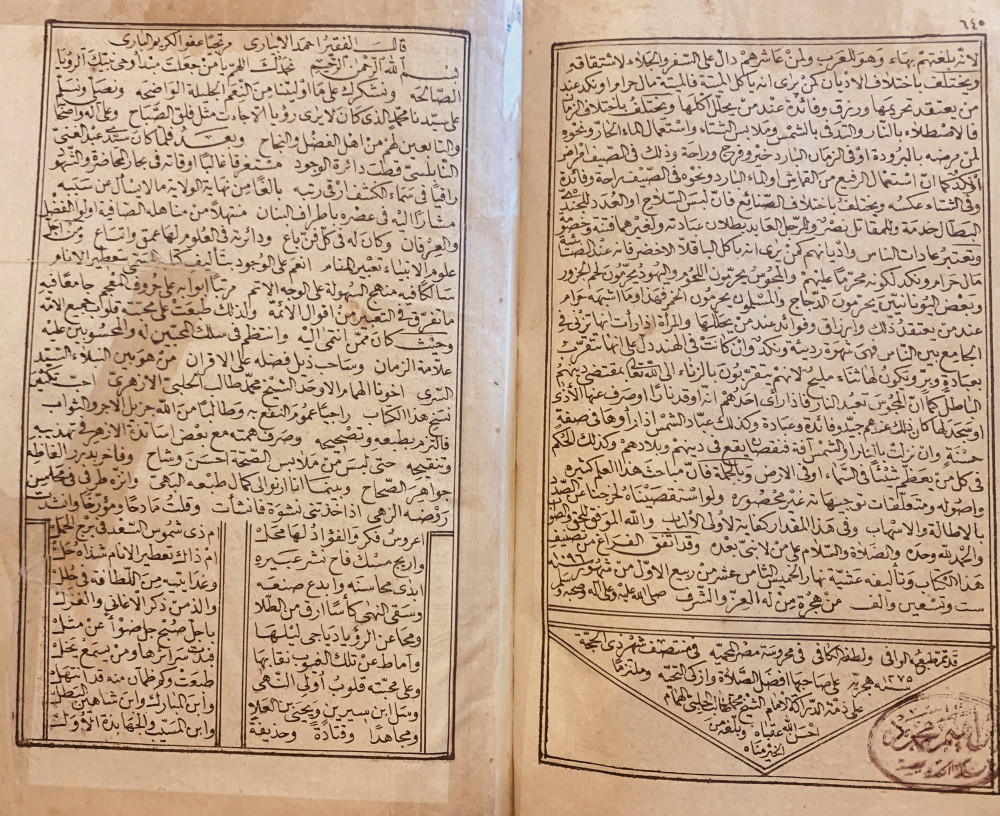 ٦٤٥
لانه بلغتهم بهاء وهو للعرب ولمن عاشرهم دال على السفر والجلاء لاشتقاقه
ويختلف باختلاف الاديان كمن يرى انه ياكل الميتة فالميتة مال حرام ونكد عند
من يعتقد تحريمها ورزق وفائدة عند من يحلل اكلها ويختلف باختلاف الزمان
فالاصطلاء بالنار والتدفى بالشمس وملابس الشتاء واستعمال الماء الحار ونحوه
لمن مرضه بالبرودة او فى الزمان البارد خير وفرج وراحة وذلك فى الصيف مرض
او نكد كما ان استعمال الرفيع من القماش او الماء البارد ونحوه فى الصيف راحة وفائدة
وفى الشتاء عكسه ويختلف باختلاف الصنائع فان لبس السلاح او العدد للجندى
البطال خدمة وللمقاتل نصر وللرجل العابد بطلان عبادته ولغيرهما فتنة وخصومة
وتعتبر عادات الناس واديانهم كمن يرى انه ياكل الباقلاء الاخضر فانه عند الصابئة
مال حرام ونكد لكونه محرما عليهم والمجوس يحرمون اللحوم واليهود يحرمون لحم الجزور
وبعض اليونانيين يحرمون الدجاج والمسلمون يحرمون الخمر فهذا وما اشبهه حرام
عند من يعتقد ذلك وارزاق وفوائد عند من يحللها والمرأة اذا رأت انها تزنى فى
الجامع بين الناس فهى شهرة رديئة ونكد وان كانت فى الهند دل على انها تتقرب
بعبادة وبر وتكون لها ثناء مليح لانهم يتقربون بالزناء الى الله تعالى بمقتضى دينهم
الباطل كما ان المجوس تعبد النار فاذا رأى احدهم انه اوقد نارا او صرف عنها الاذى
او سجد لها كان ذلك عندهم جيدا وفائدة وعبادة وكذلك عباد الشمس اذا رأوها فى صفة
حسنة وان نزلت بالنار او الشمس آفة فنقصان يقع فى دينهم وبلادهم وكذلك الحكم
فى كل من يعظم شيئا فى السماء او فى الارض وبالجملة فان مباحث هذا العلم كثيرة
واصوله ومتعلقات توجيهاته غير محصورة ولو استقصيناه لخرجنا عن الصدد
بالاطالة والاسهاب وفى هذا المقدار كفاية لاولى الالباب والله الموفق للحق والصواب
والحمد لله وحده والصلاة والسلام على من لا نبى بعده وقد اتفق الفراغ من تصنيف
هذا الكتاب وتأليفه عشية نهار الخميس الثامن عشر من ربيع الاول من شهور سنة ١٠٩٦
ست وتسعين والف من هجرة من له العز والشرف صلى الله عليه وعلى آله وصحبه وسلم
قد تم طبعه الوافى ولطفه الكافى فى محروسة مصر المحمية فى منتصف شهر ذى الحجة
١٢٧٥ سنه هجرية على صاحبها افضل الصلاة وازكى التحية وملتزما
على ذمة الشيخ محمد طالب الحلبى الهمام
احسن الله عقباه وبلغه من
الخير مناه
قال الفقير احمد الابيارى مرتجيا عفو الكريم البارى
بسم الله الرحمن الرحيم نحمدك اللهم يا من جعلت مبدأ وحى نبيك الرؤيا
الصالحة ونشكرك على ما اوليتنا من النعم الجليلة الواضحة ونصلى ونسلم
على سيدنا محمد الذى كان لا يرى رؤيا الا جاءت مثل فلق الصباح وعلى آله واصحابه
والتابعين لهم من اهل الفضل والنجاح وبعد فلما كان سيدى عبد الغنى
النابلسى قطب دائرة الوجود مستغرقا غالب اوقاته فى بحار المحاضرة والشهود
راقيا فى سماء الكشف ارقى رتبه بالغا من نهاية الولاية ما لا يسأل عن سببه
مشارا اليه فى عصره باطراف البنان منتهلا من مناهله الصافية اولو الفضل
والعرفان وكان له فى كل فن باغ ودائرته فى العلوم لها عمق واتساع ومن اجل
علوم الانبياء تعبير المنام انعم على الوجود بتاليف كتابه المسمى بتعطير الانام
سالكا فيه منهج السهولة على الوجه الاتم مرتبا ابوابه على حروف المعجم جامعا فيه
ما تفرق فى التعبير من اقوال الائمه ولذلك طبعت على محبته قلوب جميع الامه
وحيث كان ممن انتمى اليه وانتظم فى سلك المحبين له والمحسوبين عليه
علامة الزمان وساحب ذيل فضله على الاقران من هو بين النبلاء السيد
السرى اخونا الهمام الاوحد الشيخ محمد طالب الحلبى الازهرى احب تكثير
نسخ هذا الكتاب راجيا عموم النفع به وطالبا من الله جزيل الاجر والثواب
فالتزم بطبعه وتصحيحه وصرف همته مع بعض اساتذة الازهر فى تهذيبه
وتنقيحه حتى لبس من ملابس الصحة احسن وشاح وفاخر بدرر الفاظه
جواهر الصحاح وبينما انا ارنو الى كمال طبعه البهى وانزه طرفى فى محاسن
روضه الزهى اذ اخذتنى نشوة فانشأت وقلت مادحا ومؤرخا وانشدت
اعروس فكر والفؤاد لها محل ام ذى شموس السعد فى برج الحمل
واريج مسك فاح نشر عبيره ام ذاك تعطير الانام شذاه حل
ابدى محاسنه وابدع صنعه وغدا بنيه من اللطافة فى حلل
وسقى النهى كأسا ارق من الطلا والذ من ذكر الاغانى والغزل
ومحا عن الرؤيا دياجى ليلها باجل صبح جل ضوأ عن مثل
واماط عن تلك الغيوب نقابها فبدت سرائرها ومن يسمع يخل
وعلى محبته قلوب اولى النهى طبعت وكم ظمآن منه قد انتهل
وسل ابن سيرين ويحيى بن العلا وابن المبارك وابن شاهين البطل
ومجاهدا وقتادة وحذيفة وابن المسيب والجهابذة الاول